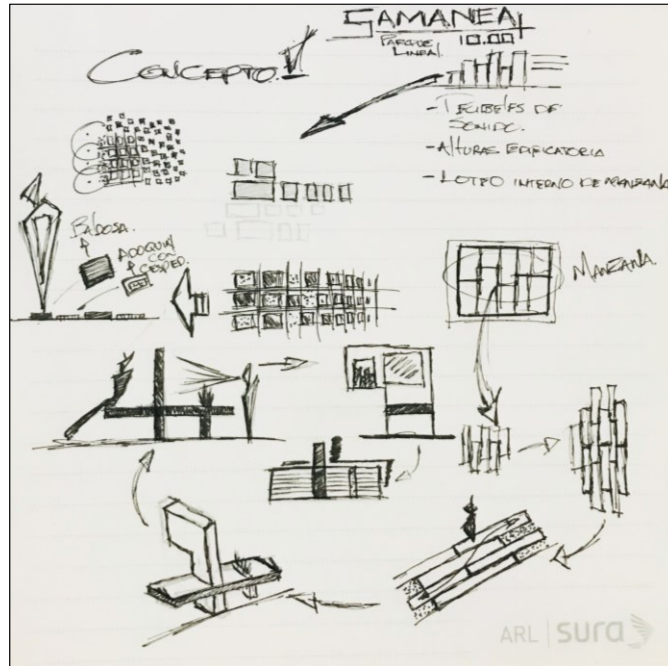 SAMANEA
PARQUE
LINEAL.
10.00
CONCEPTO.
- DECIBELES DE
SONIDO.
- ALTURAS EDIFICATORIA
- LOTEO INTERNO DE MANZANA
BALDOSA.
ADOQUIN
CON
CESPED.
MANZANA.
ARL sura